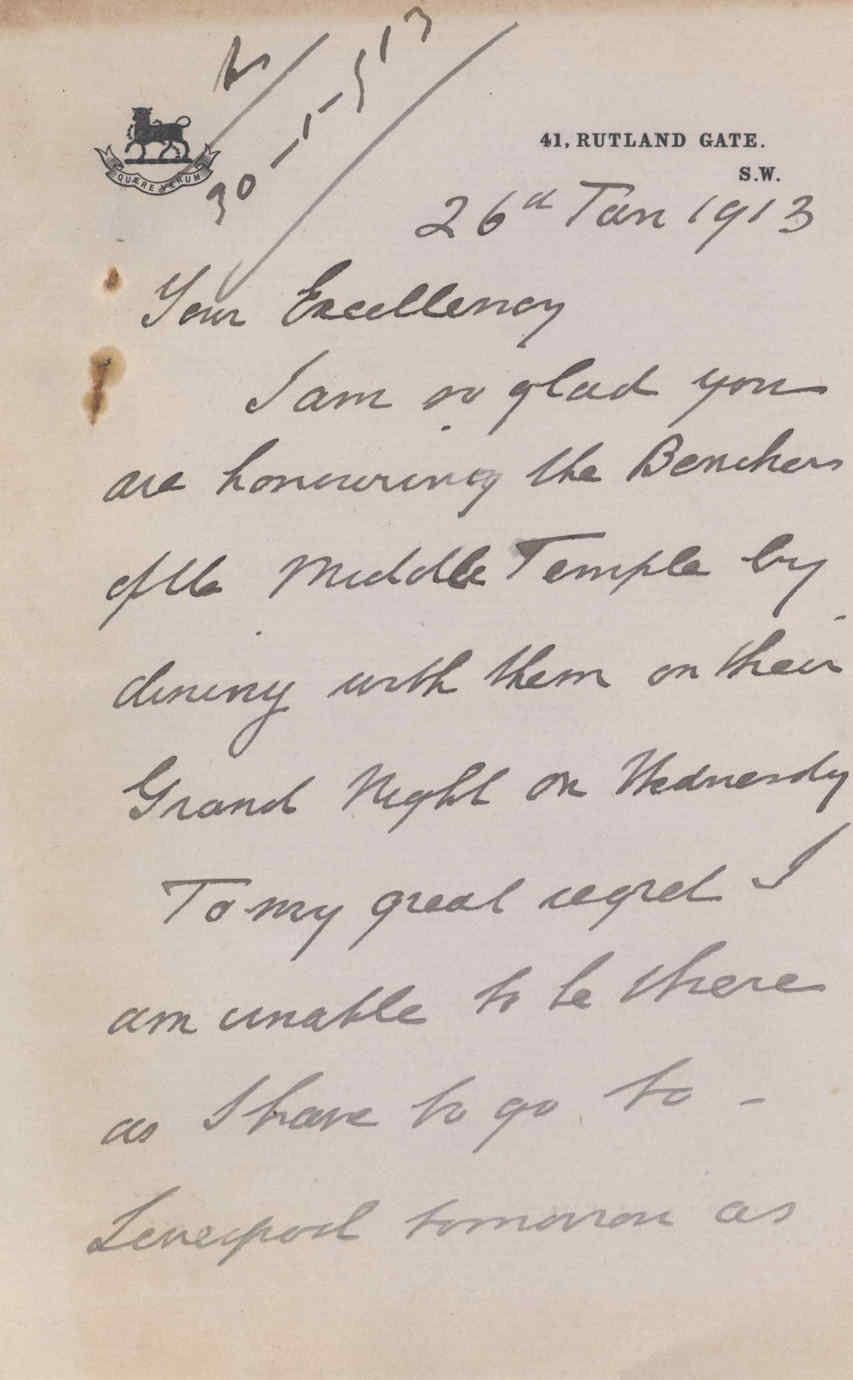 30-1-913
QUÆRE VERUM
41, RUTLAND GATE.
S.W.
26th Jan 1913
Your Excellency
I am so glad you
are honouring the Benchers
of the Middle Temple by
dining with them on their
Grand Night on Wednesday
To my great regret I
am unable to be there
as I have to go to -
Liverpool tomorrow as